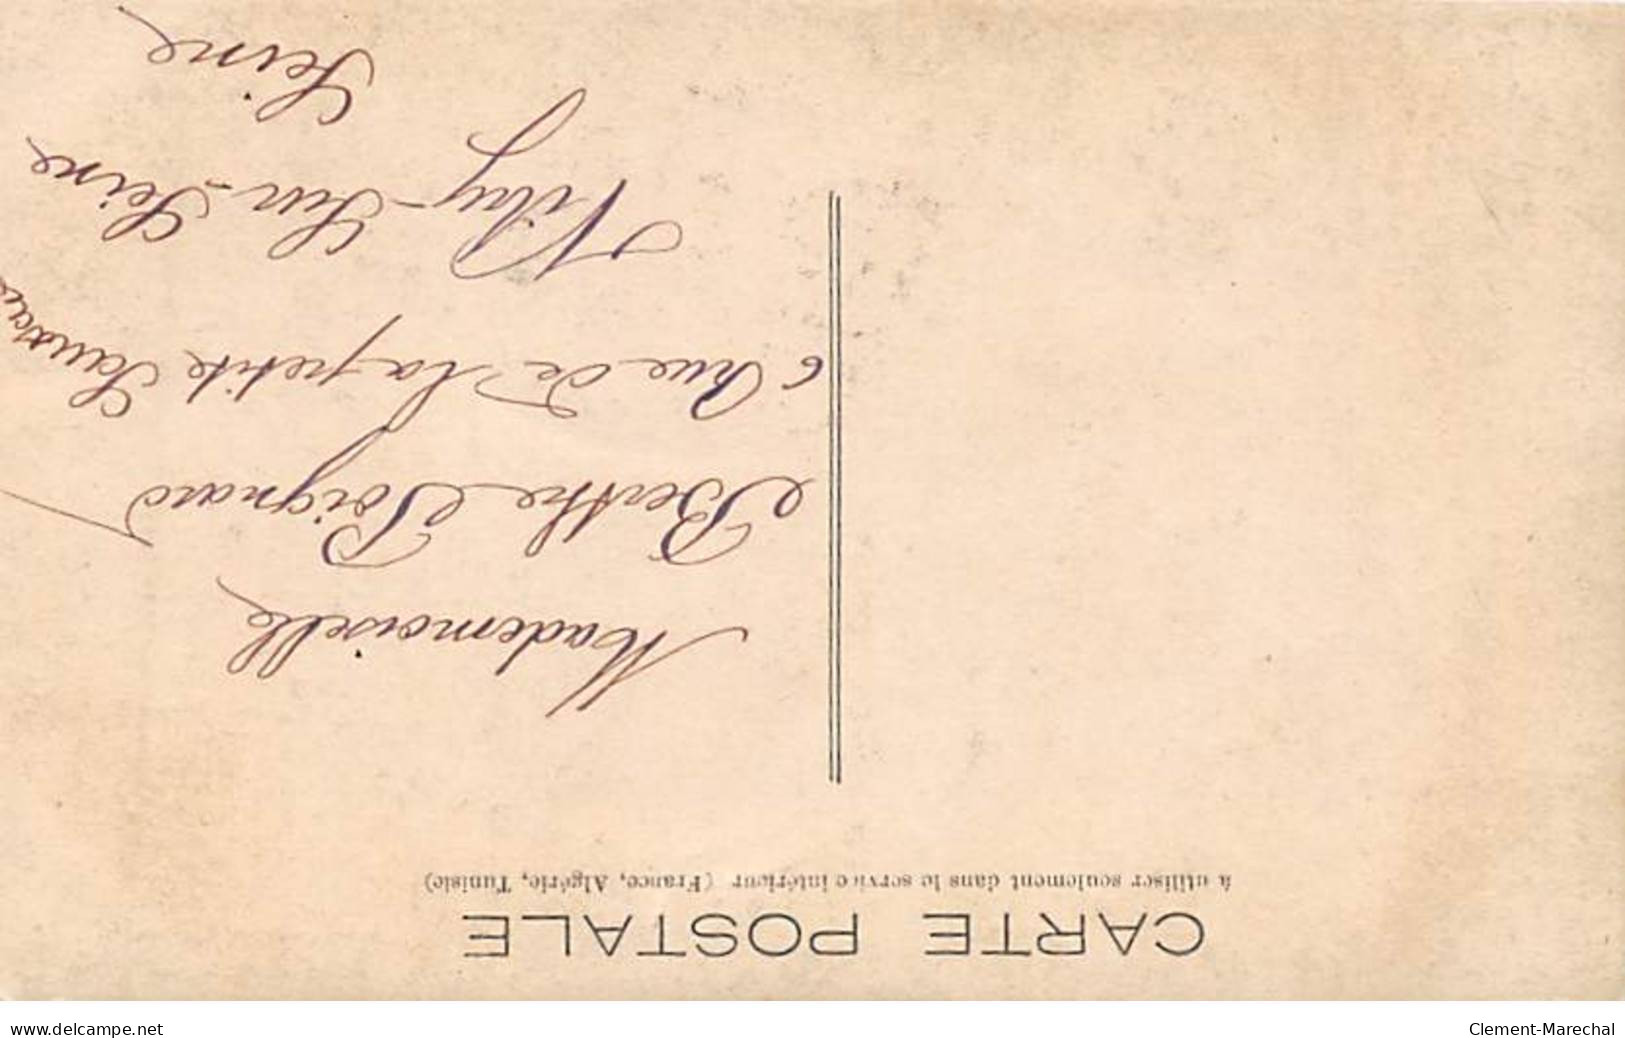 CARTE POSTALE
à utiliser seulement dans le service intérieur (France, Algérie, Tunisie)
Mademoiselle
Berthe Poignard
6 Rue de la petite
Vitry-Sur-Seine
Seine
www.delcampe.net
Clement-Marechal